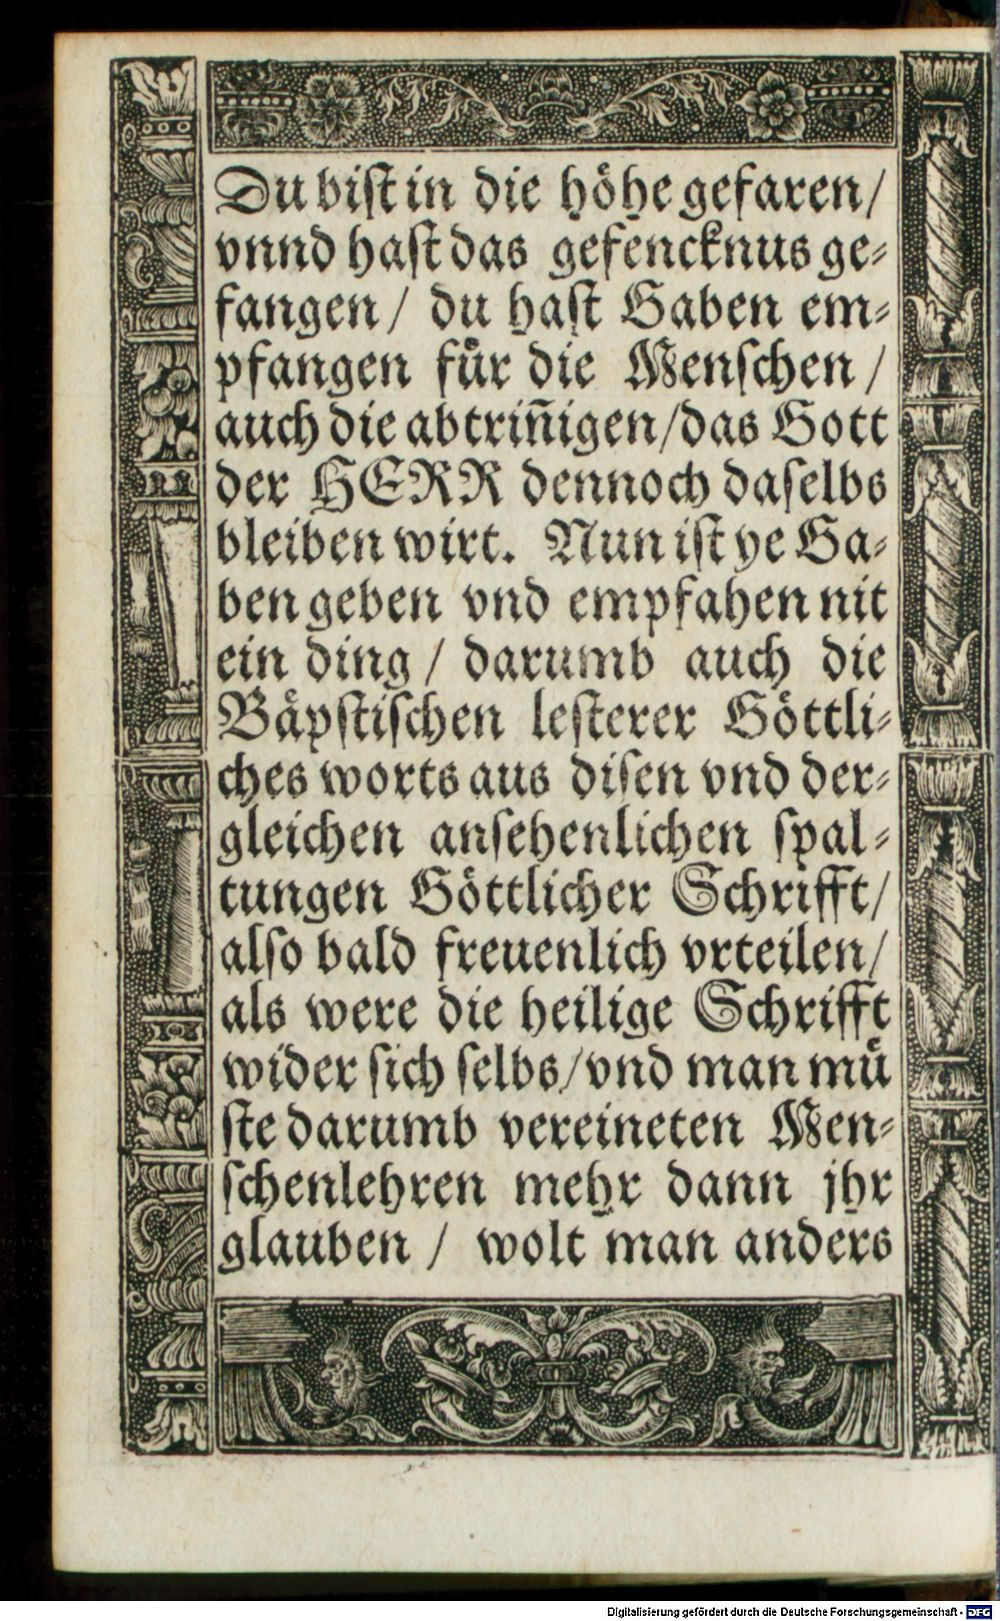 Du bist in die höhe gefaren/
vnnd hast das gefencknus ge-
fangen/ du hast Gaben em-
pfangen fuͤr die Menschen/
auch die abtrin̄igen/das Gott
der HERR dennoch daselbs
bleiben wirt. Nun ist ye Ga-
ben geben vnd empfahen nit
ein ding/ darumb auch die
Bäpstischen lesterer Göttli-
ches worts aus disen vnd der-
gleichen ansehenlichen spal-
tungen Göttlicher Schrifft/
also bald freuenlich vrteilen/
als were die heilige Schrifft
wider sich selbs/vnd man muͤ
ste darumb vereineten Men-
schenlehren mehr dann jhr
glauben/ wolt man anders
Digitalisierung gefördert durch die Deutsche Forschungsgemeinschaft - DFG